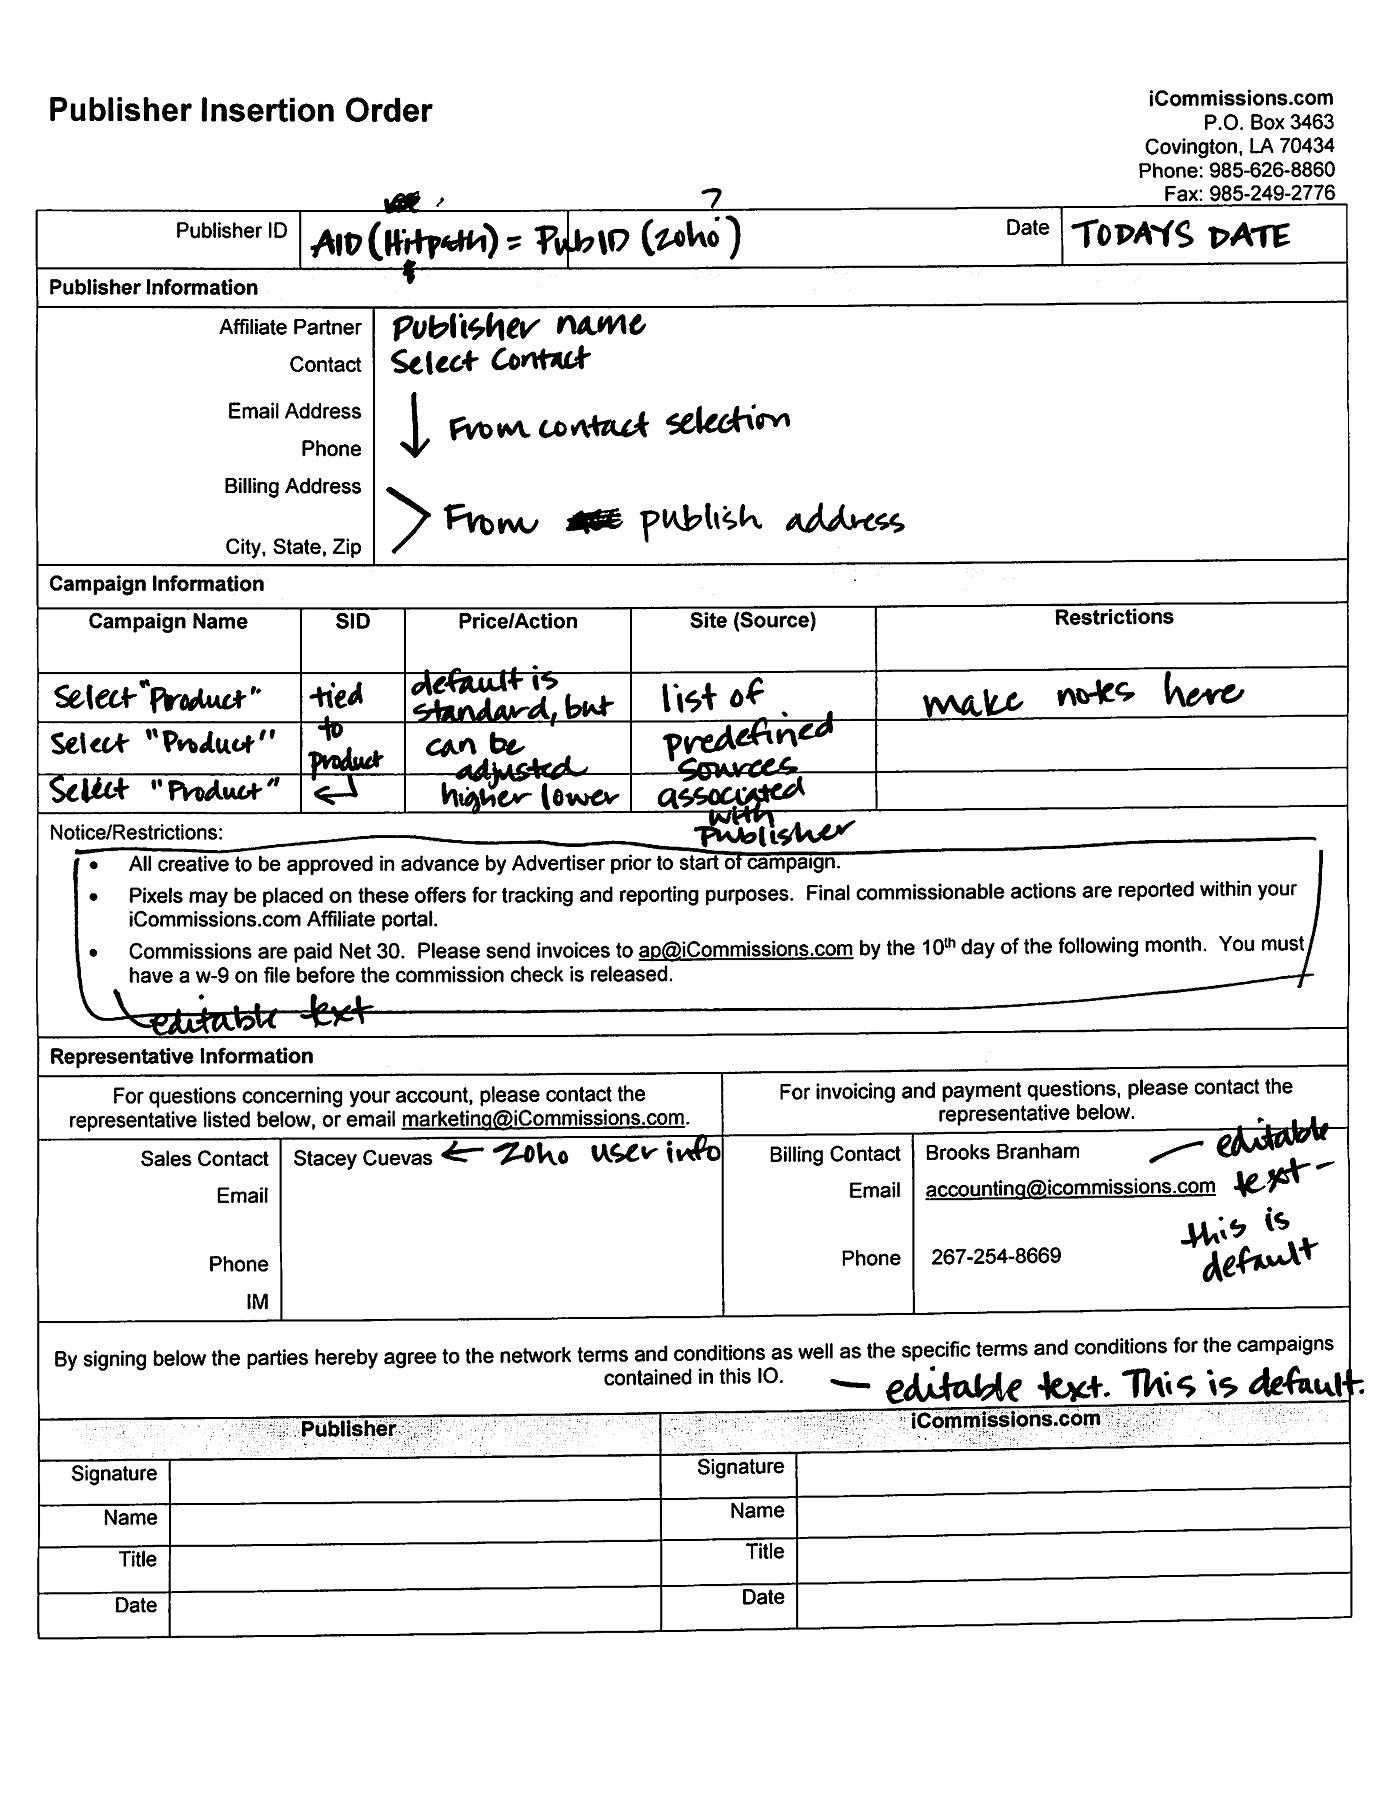 Publisher Insertion Order
iCommissions.com
P.O. Box 3463
Covington, LA 70434
Phone: 985-626-8860
Fax: 985-249-2776
Publisher ID AID (Hitpath) = PubID (Zoho) Date TODAYS DATE
Publisher Information
Affiliate Partner Publisher name
Contact Select Contact
Email Address
From contact selection
Phone
Billing Address
From publish address
City, State, Zip
Campaign Information
Campaign Name SID Price/Action Site (Source) Restrictions
Select "Product" tied default is standard, but list of make notes here
Select "Product" to product can be adjusted predefined sources
Select "Product" higher lower associated with Publisher
Notice/Restrictions:
• All creative to be approved in advance by Advertiser prior to start of campaign.
• Pixels may be placed on these offers for tracking and reporting purposes. Final commissionable actions are reported within your
iCommissions.com Affiliate portal.
• Commissions are paid Net 30. Please send invoices to ap@iCommissions.com by the 10th day of the following month. You must
have a w-9 on file before the commission check is released.
editable text
Representative Information
For questions concerning your account, please contact the
representative listed below, or email marketing@iCommissions.com.
For invoicing and payment questions, please contact the
representative below.
Sales Contact Stacey Cuevas ← Zoho user info
Email
Phone
IM
Billing Contact Brooks Branham
Email accounting@icommissions.com
Phone 267-254-8669
editable
text –
this is
default
By signing below the parties hereby agree to the network terms and conditions as well as the specific terms and conditions for the campaigns
contained in this IO. – editable text. This is default.
Publisher iCommissions.com
Signature Signature
Name Name
Title Title
Date Date